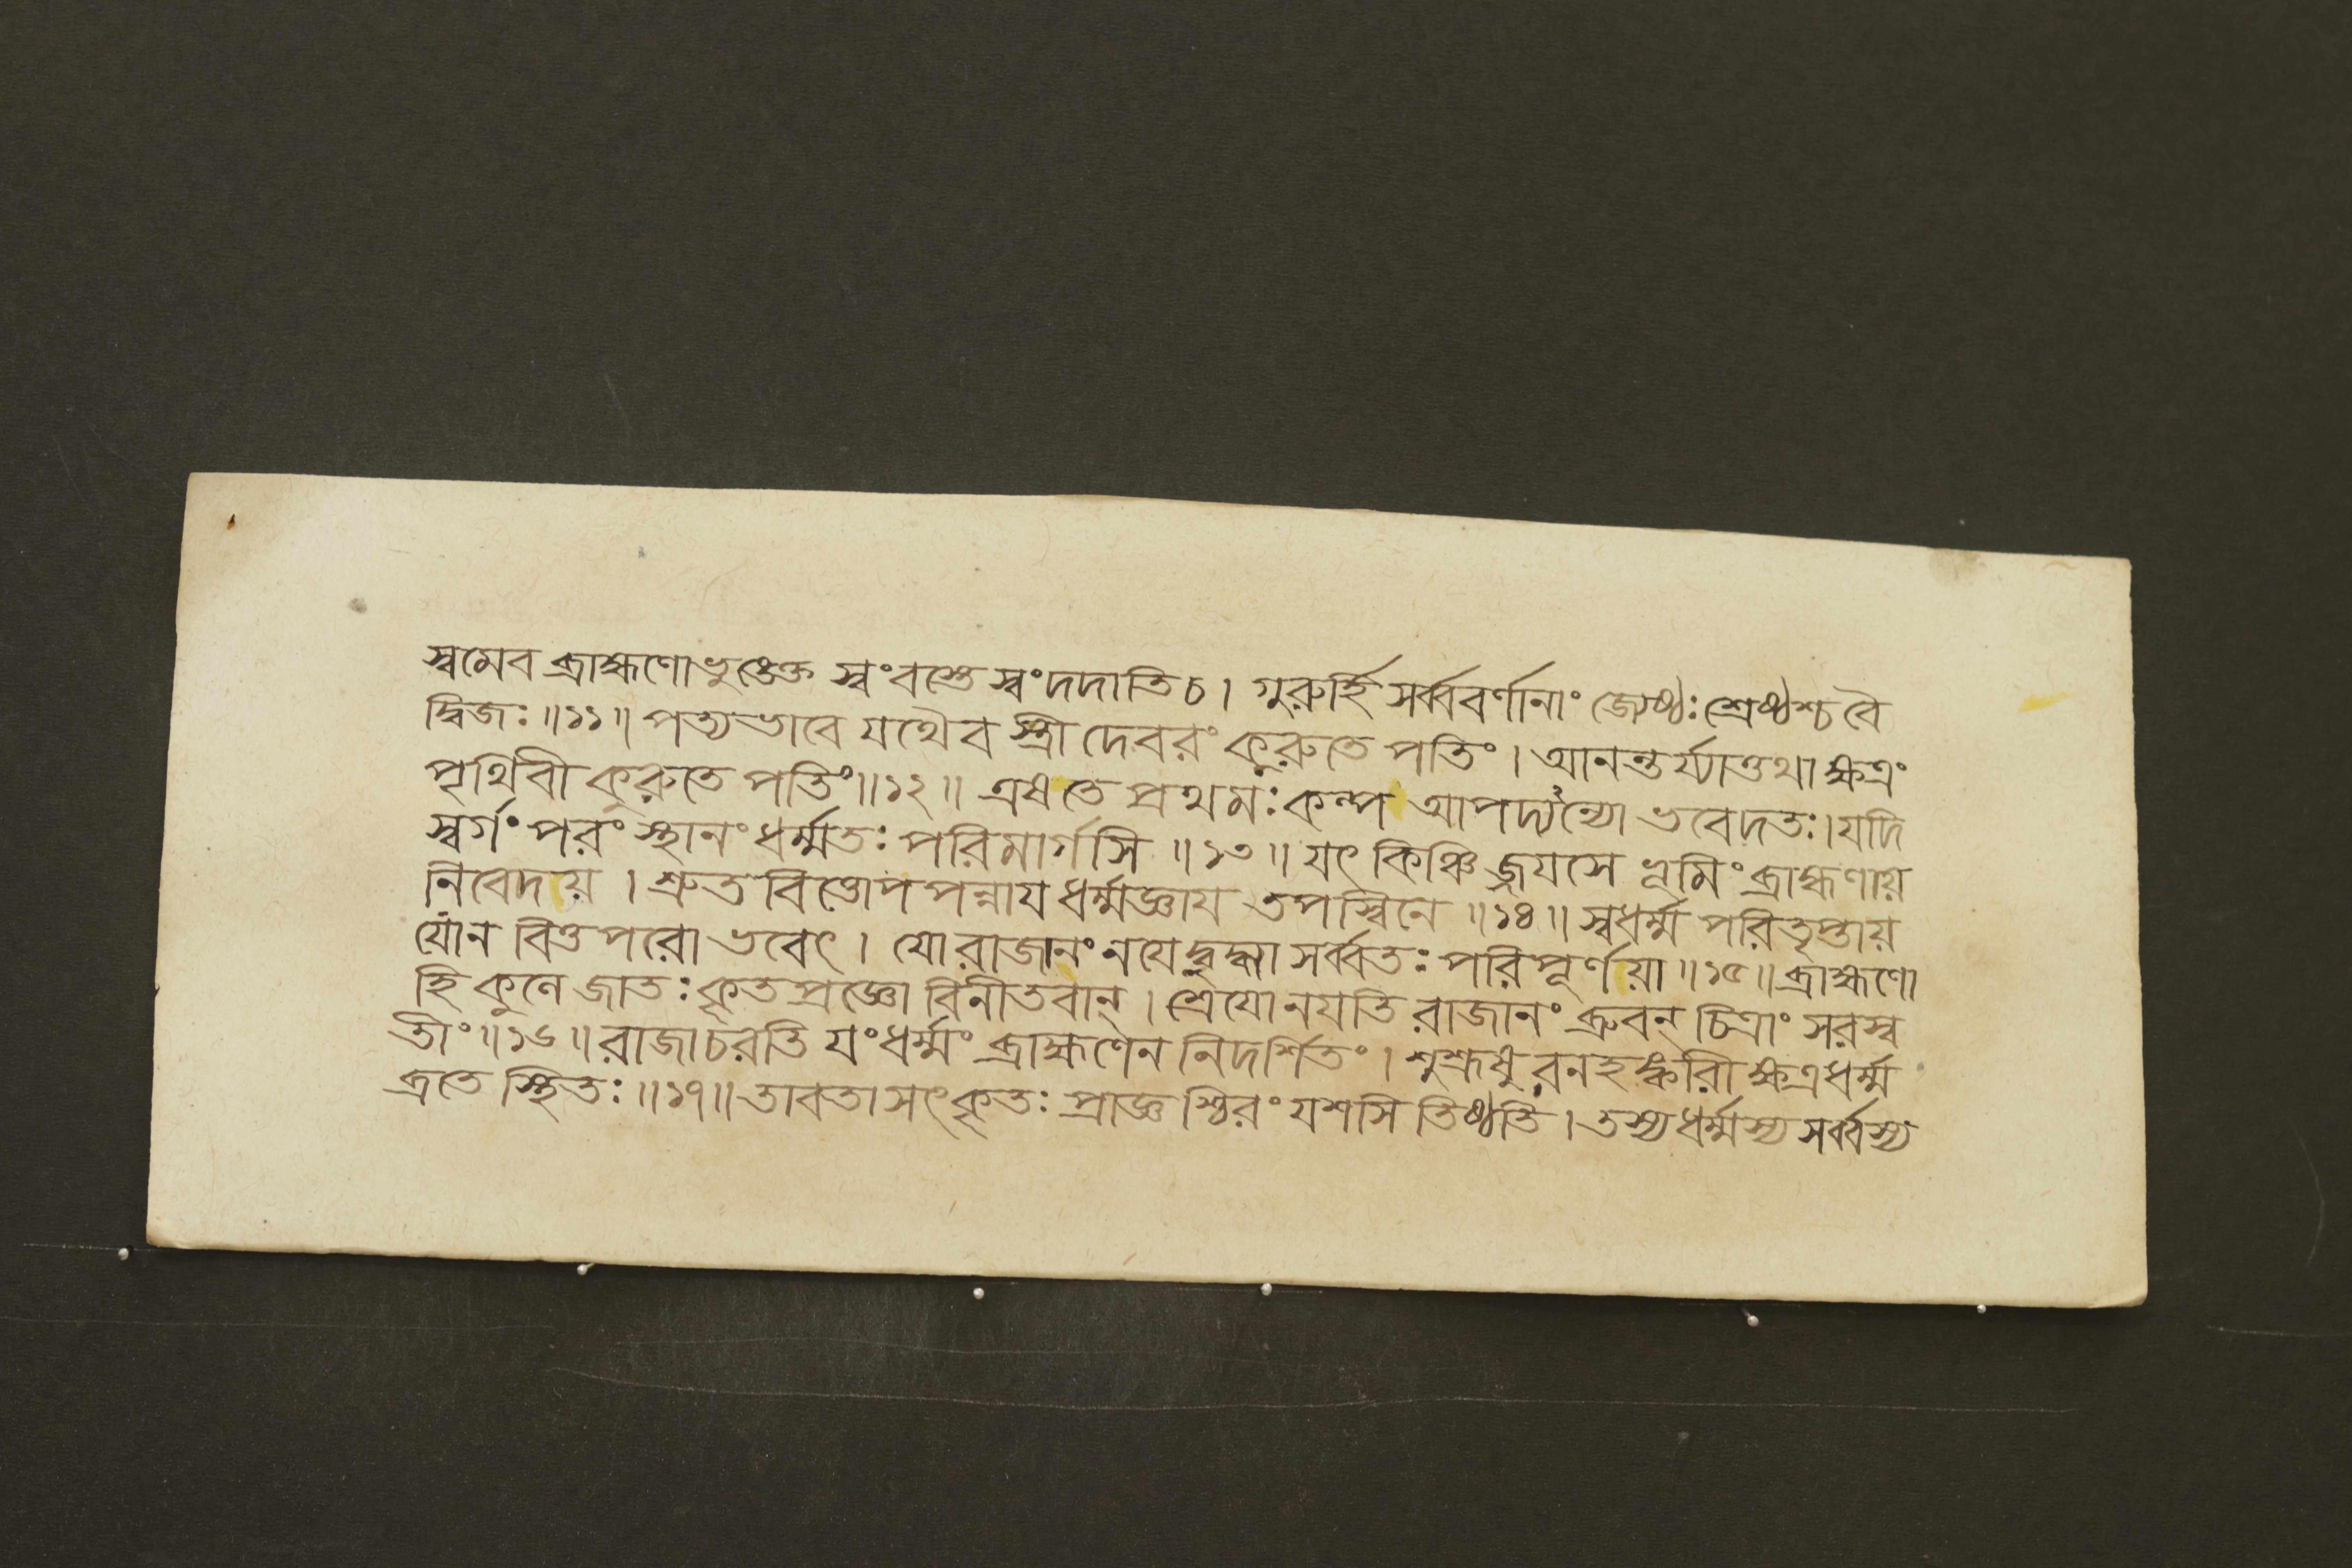 স্বমেব ব্রাহ্মণো ভুঙ্ক্তে স্বং বস্তে স্বং দদাতি চ। গুরুর্হি সর্ব্ববর্ণানাং জ্যেষ্ঠঃ শ্রেষ্ঠশ্চ বৈ
দ্বিজঃ॥১১॥ পত্যভাবে যথৈব স্ত্রী দেবরং কুরুতে পতিং। আনন্তর্য্যাত্তথা ক্ষত্রং
পৃথিবী কুরুতে পতিং॥১২॥ এষ তে প্রথমঃ কল্প আপদ্যন্যো ভবেদতঃ। যদি
স্বর্গং পরং স্থানং ধর্ম্মতঃ পরিমার্গসি॥১৩॥ যৎ কিঞ্চিজ্জয়সে ভূমিং ব্রাহ্মণায়
নিবেদয়। শ্রুতবিত্তোপপন্নায ধর্ম্মজ্ঞায তপস্বিনে॥১৪॥ স্বধর্ম্মপরিতৃপ্তায়
যো ন বিত্তপরো ভবেৎ। যো রাজানং নযেদ্বুদ্ধ্যা সর্ব্বতঃ পরিপূর্ণয়া॥১৫॥ ব্রাহ্মণো
হি কুলে জাতঃ কৃতপ্রজ্ঞো বিনীতবান্। শ্রেযো নযতি রাজানং ব্রুবন্ চিত্রাং সরস্ব
তীং॥১৬॥ রাজা চরতি যং ধর্ম্মং ব্রাহ্মণেন নিদর্শিতং। শুশ্রূষুরনহঙ্কারী ক্ষত্রধর্ম্ম
ব্রতে স্থিতঃ॥১৭॥ তাবতা সৎকৃতঃ প্রাজ্ঞশ্চিরং যশসি তিষ্ঠতি। তস্য ধর্ম্মস্য সর্ব্বস্য